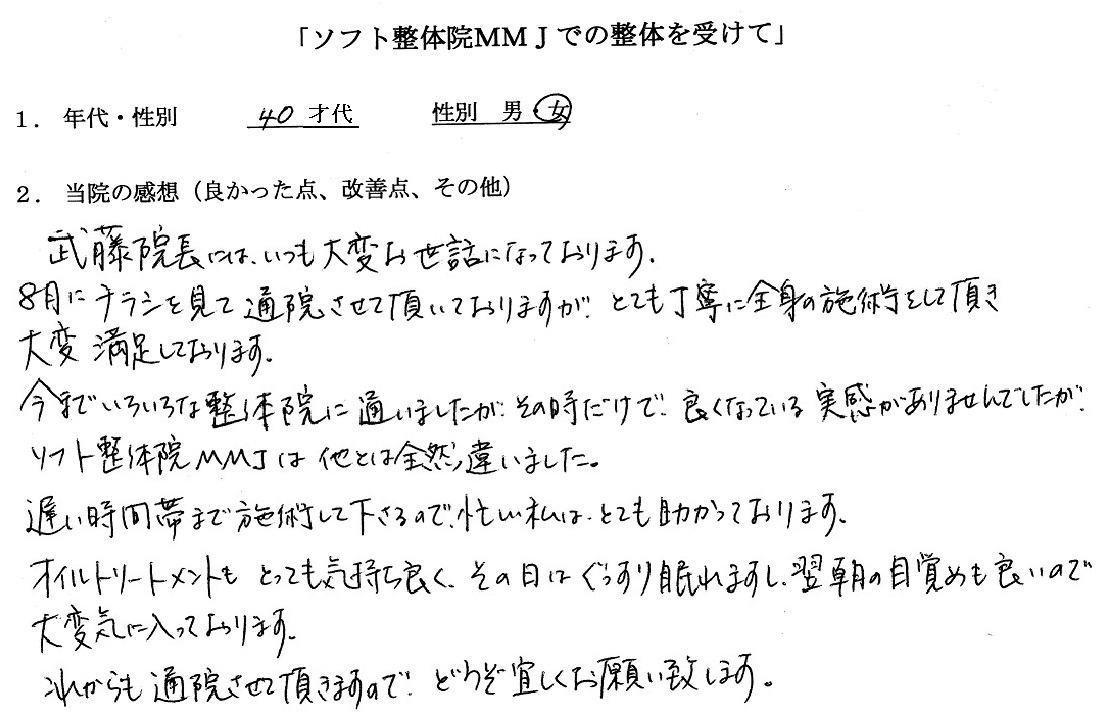 「ソフト整体院MMJでの整体を受けて」
1. 年代・性別 40 才代 性別 男・女
2. 当院の感想（良かった点、改善点、その他）
武藤院長には、いつも大変お世話になっております。
8月にチラシを見て通院させて頂いておりますが、とても丁寧に全身の施術をして頂き
大変満足しております。
今までいろいろな整体院に通いましたが、その時だけで、良くなっている実感がありませんでしたが、
ソフト整体院MMJは他とは全然違いました。
遅い時間帯まで施術して下さるので、忙しい私は、とても助かっております。
オイルトリートメントもとっても気持ち良く、その日はぐっすり眠れますし、翌朝の目覚めも良いので
大変気に入っております。
これからも通院させて頂きますので、どうぞ宜しくお願い致します。